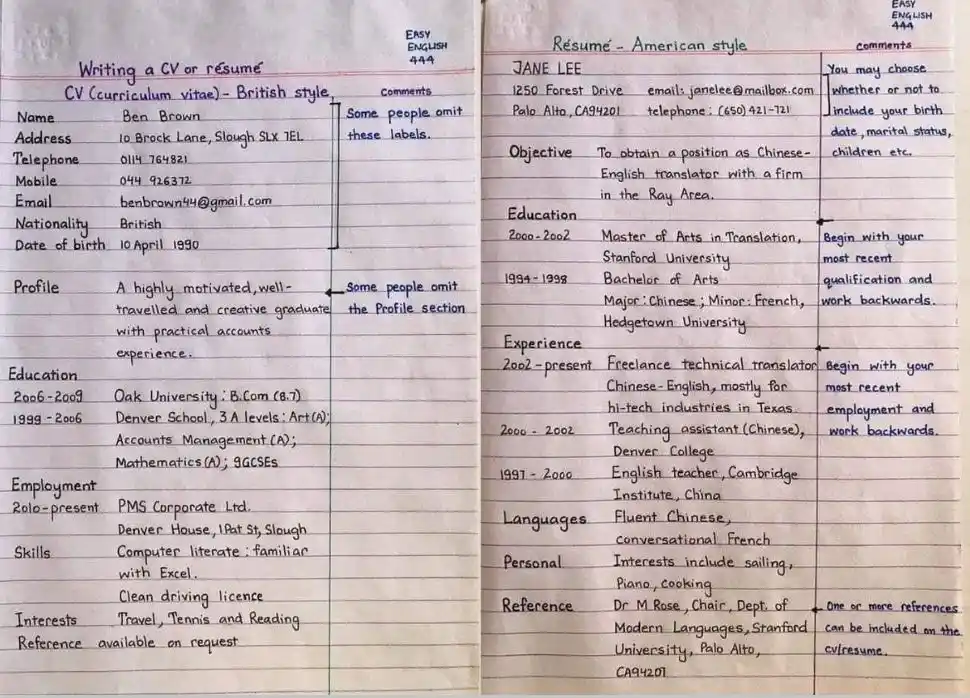 EASY
ENGLISH
444
Writing a CV or résumé
CV (curriculum vitae) - British style
Comments
Name Ben Brown
Some people omit
Address 10 Brock Lane, Slough SLX 7EL
these labels.
Telephone 0114 764821
Mobile 044 926372
Email benbrown44@gmail.com
Nationality British
Date of birth 10 April 1990
Profile A highly motivated, well-
Some people omit
travelled and creative graduate
the Profile section
with practical accounts
experience.
Education
2006-2009 Oak University: B.Com (8.7)
1999-2006 Denver School, 3 A levels: Art(A);
Accounts Management (A);
Mathematics (A); 9GCSEs
Employment
2010-present PMS Corporate Ltd.
Denver House, 1Pat St, Slough
Skills Computer literate: familiar
with Excel.
Clean driving licence
Interests Travel, Tennis and Reading
Reference available on request
EASY
ENGLISH
444
Résumé - American style
comments
JANE LEE
You may choose
1250 Forest Drive email: janelee@mailbox.com
whether or not to
Palo Alto, CA94201 telephone: (650) 421-721
include your birth
date, marital status,
Objective To obtain a position as Chinese-
children etc.
English translator with a firm
in the Ray Area.
Education
2000-2002 Master of Arts in Translation,
Begin with your
Stanford University
most recent
1994-1998 Bachelor of Arts
qualification and
Major: Chinese; Minor: French,
work backwards.
Hedgetown University
Experience
2002-present Freelance technical translator
Begin with your
Chinese-English, mostly for
most recent
hi-tech industries in Texas.
employment and
2000-2002 Teaching assistant (Chinese),
work backwards.
Denver College
1997-2000 English teacher, Cambridge
Institute, China
Languages Fluent Chinese,
conversational French
Personal Interests include sailing,
Piano, cooking
Reference Dr M Rose, Chair, Dept. of
One or more references
Modern Languages, Stanford
can be included on the
University, Palo Alto,
cv/resume.
CA94201